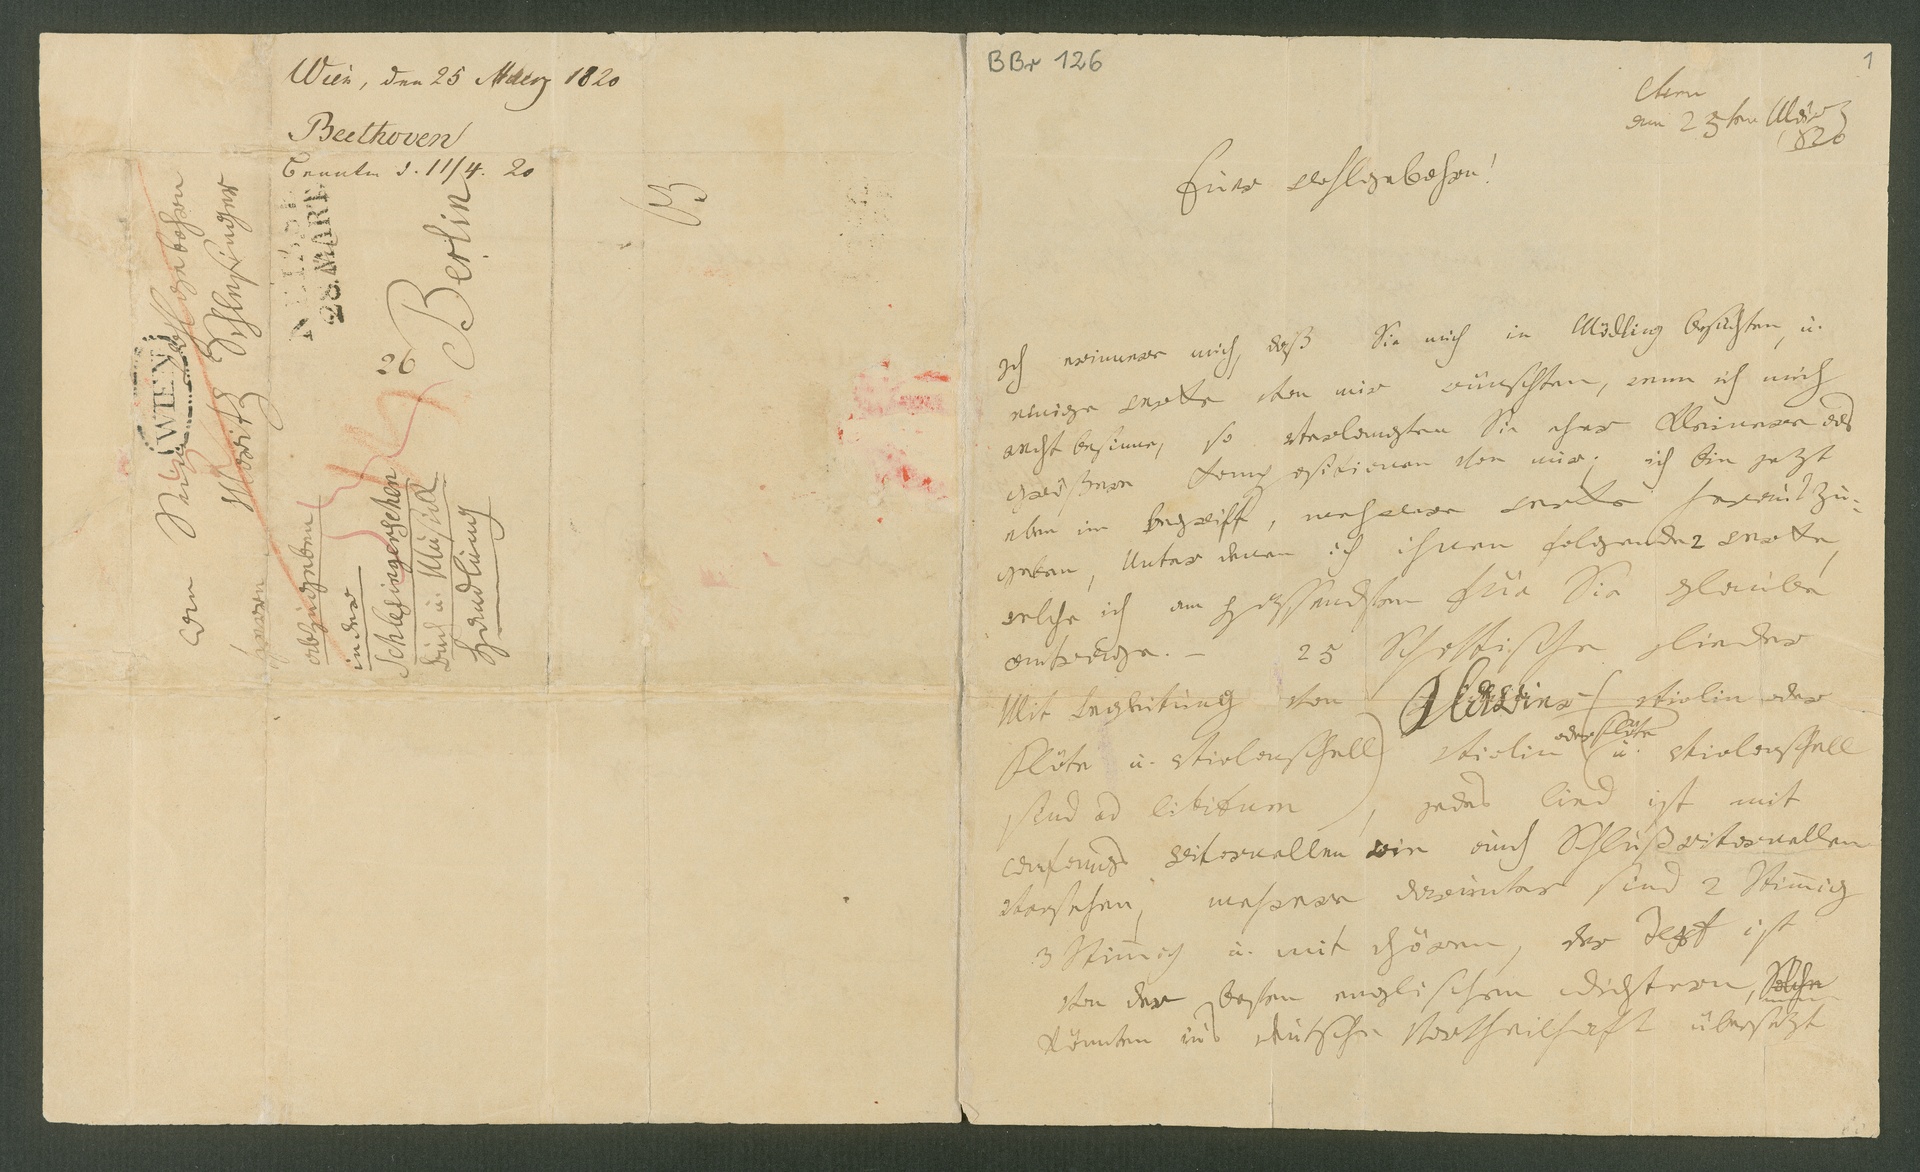 Wien, den 25 Maerz 1820
Beethoven
d. 11/4. 20
An Seine Wohlgebohren
Herrn
Moritz Schlesinger
WIEN
28. MART
Berlin
26
abzugeben
in der
Schlesingerschen
Buch u. Musick
Handlung
BBr 126
1
Vien
am 25ten März
1820
Euer wohlgebohren!
Ich erinnere mich, daß Sie mich in Mödling besuchten, u.
einige werke von mir wünschten, wenn ich mich
recht besinne, so verlangten Sie eher kleinere als
größere Compositionen von mir; ich bin jezt
eben im Begriff, mehrere werke herauszu-
geben, Unter denen ich ihnen folgende 2 werke,
welche ich am passendsten für Sie glaube
antrage. – 25 Schottische Lieder
Mit Begleitung von Klawier – (violin oder
Flöte u. violonschell) violin oder Flöte u. violonschell
sind ad libitum), jedes lied ist mit
anfangs ritornellen wie auch Schlußritornellen
versehen, mehrere darunter sind 2 Stimig
3 Stimig u. mit chören, der Text ist
von den besten englischen dichtern,
könnten ins deutsche vortheilhaft übersezt